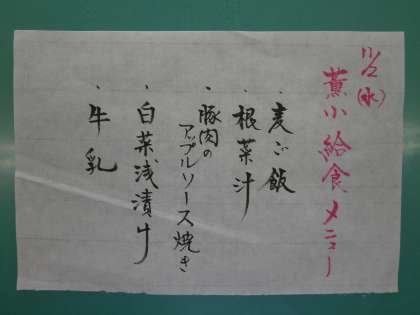 11/2(水)
薫小給食メニュー
・麦ご飯
・根菜汁
・豚肉の
アップルソース焼き
・白菜浅漬け
・牛乳